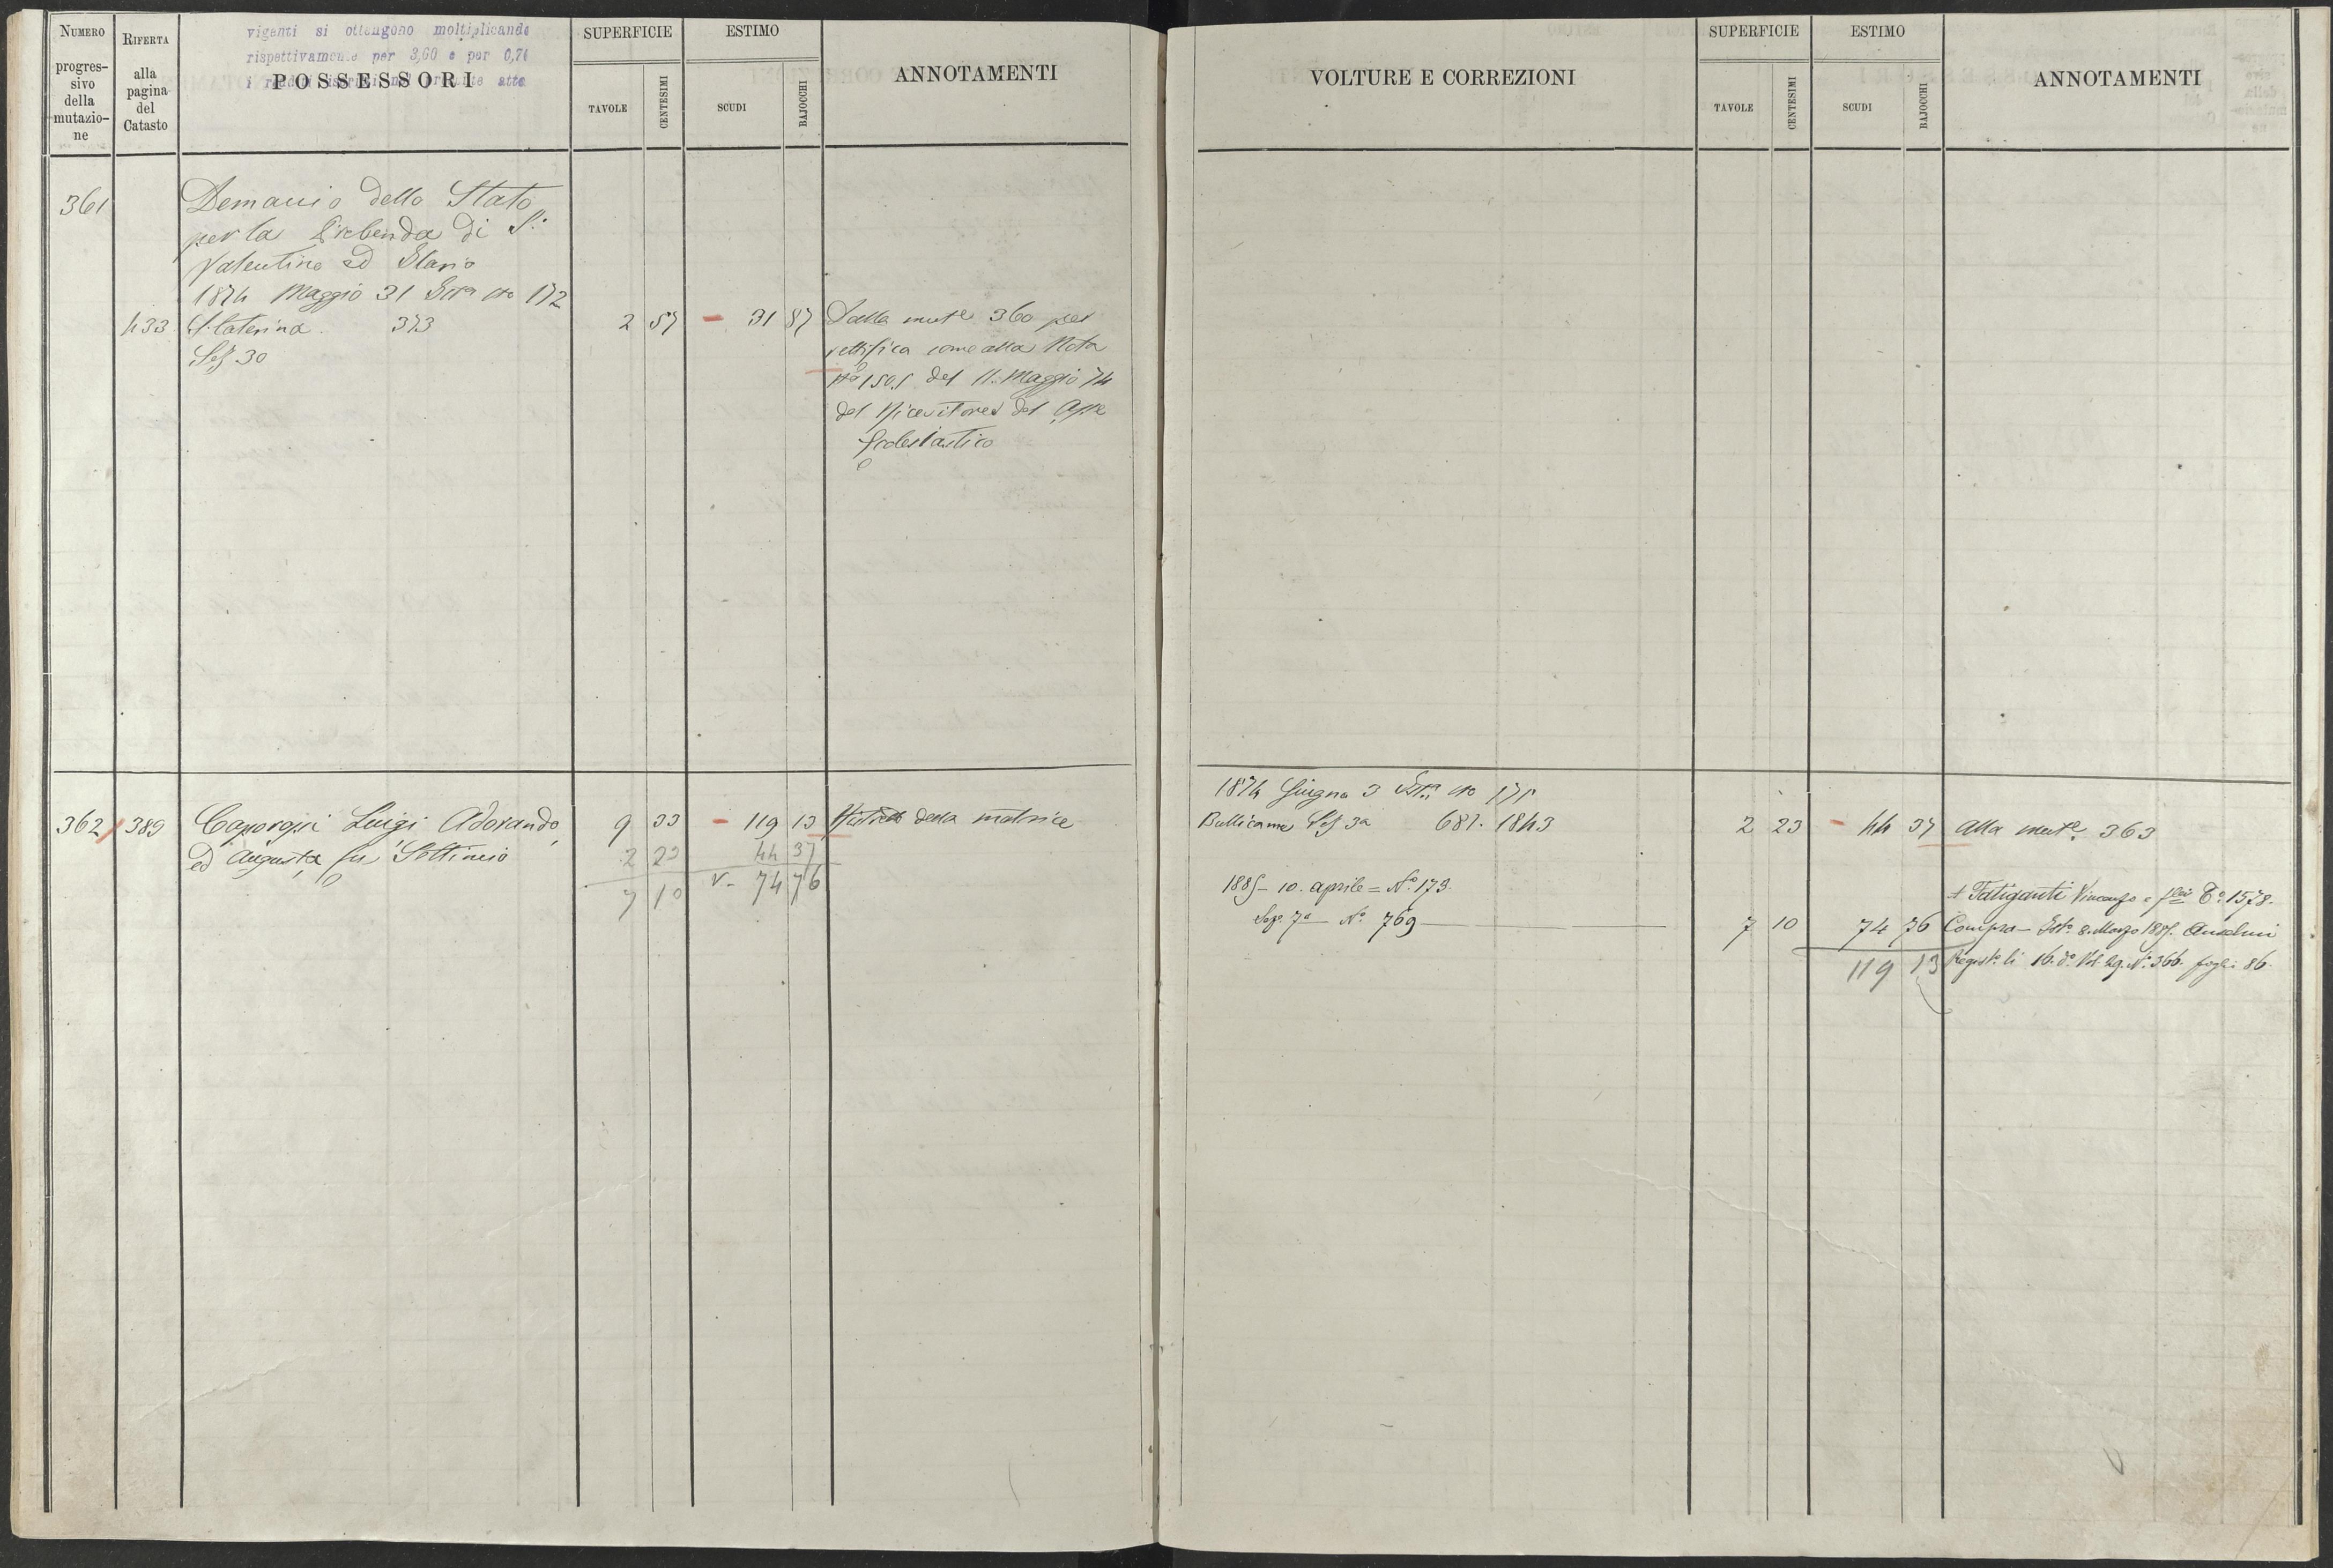 NUMERO
progres-
sivo
della
mutazio-
ne
RIFERTA
alla
pagina
del
Catasto
viganti si ottengono moltiplicando
rispettivamente per 3,60 e per 0,74
POSSESSORI
SUPERFICIE
TAVOLE
CENTESIMI
ESTIMO
SCUDI
BAJOCCHI
ANNOTAMENTI
361
Demanio dello Stato
per la Prebenda di S.
Valentino ed Ilario
1874 Maggio 31 No 172
433 S. Caterina 373 2 57 - 31 87 Dalla mute 360 per
Sez 30 rettifica come alla Nota
No 1505 del 11. Maggio 74
del Ricevitore del
Ecclesiastico
362 389 Caporossi Luigi Adorando, 9 33 - 119 13 della matrice
ed Augusta fu Settimio 2 23 44 37
7 10 74 76
VOLTURE E CORREZIONI
SUPERFICIE
TAVOLE
CENTESIMI
ESTIMO
SCUDI
BAJOCCHI
ANNOTAMENTI
1874 Giugno 3 No 171
Bullicame Sez 3a 681. 1843 2 23 - 44 37 Alla mute 363
1885 - 10. aprile = No. 173.
+ Fatiganti Vincenzo e To. 1578.
Sez. 7a No. 769 7 10 74 76 Compra - Isto. 8. Marzo 1885. Anselmi
119 13 Registo. li 16. do. Vol. 29. No. 366. fogli 86.